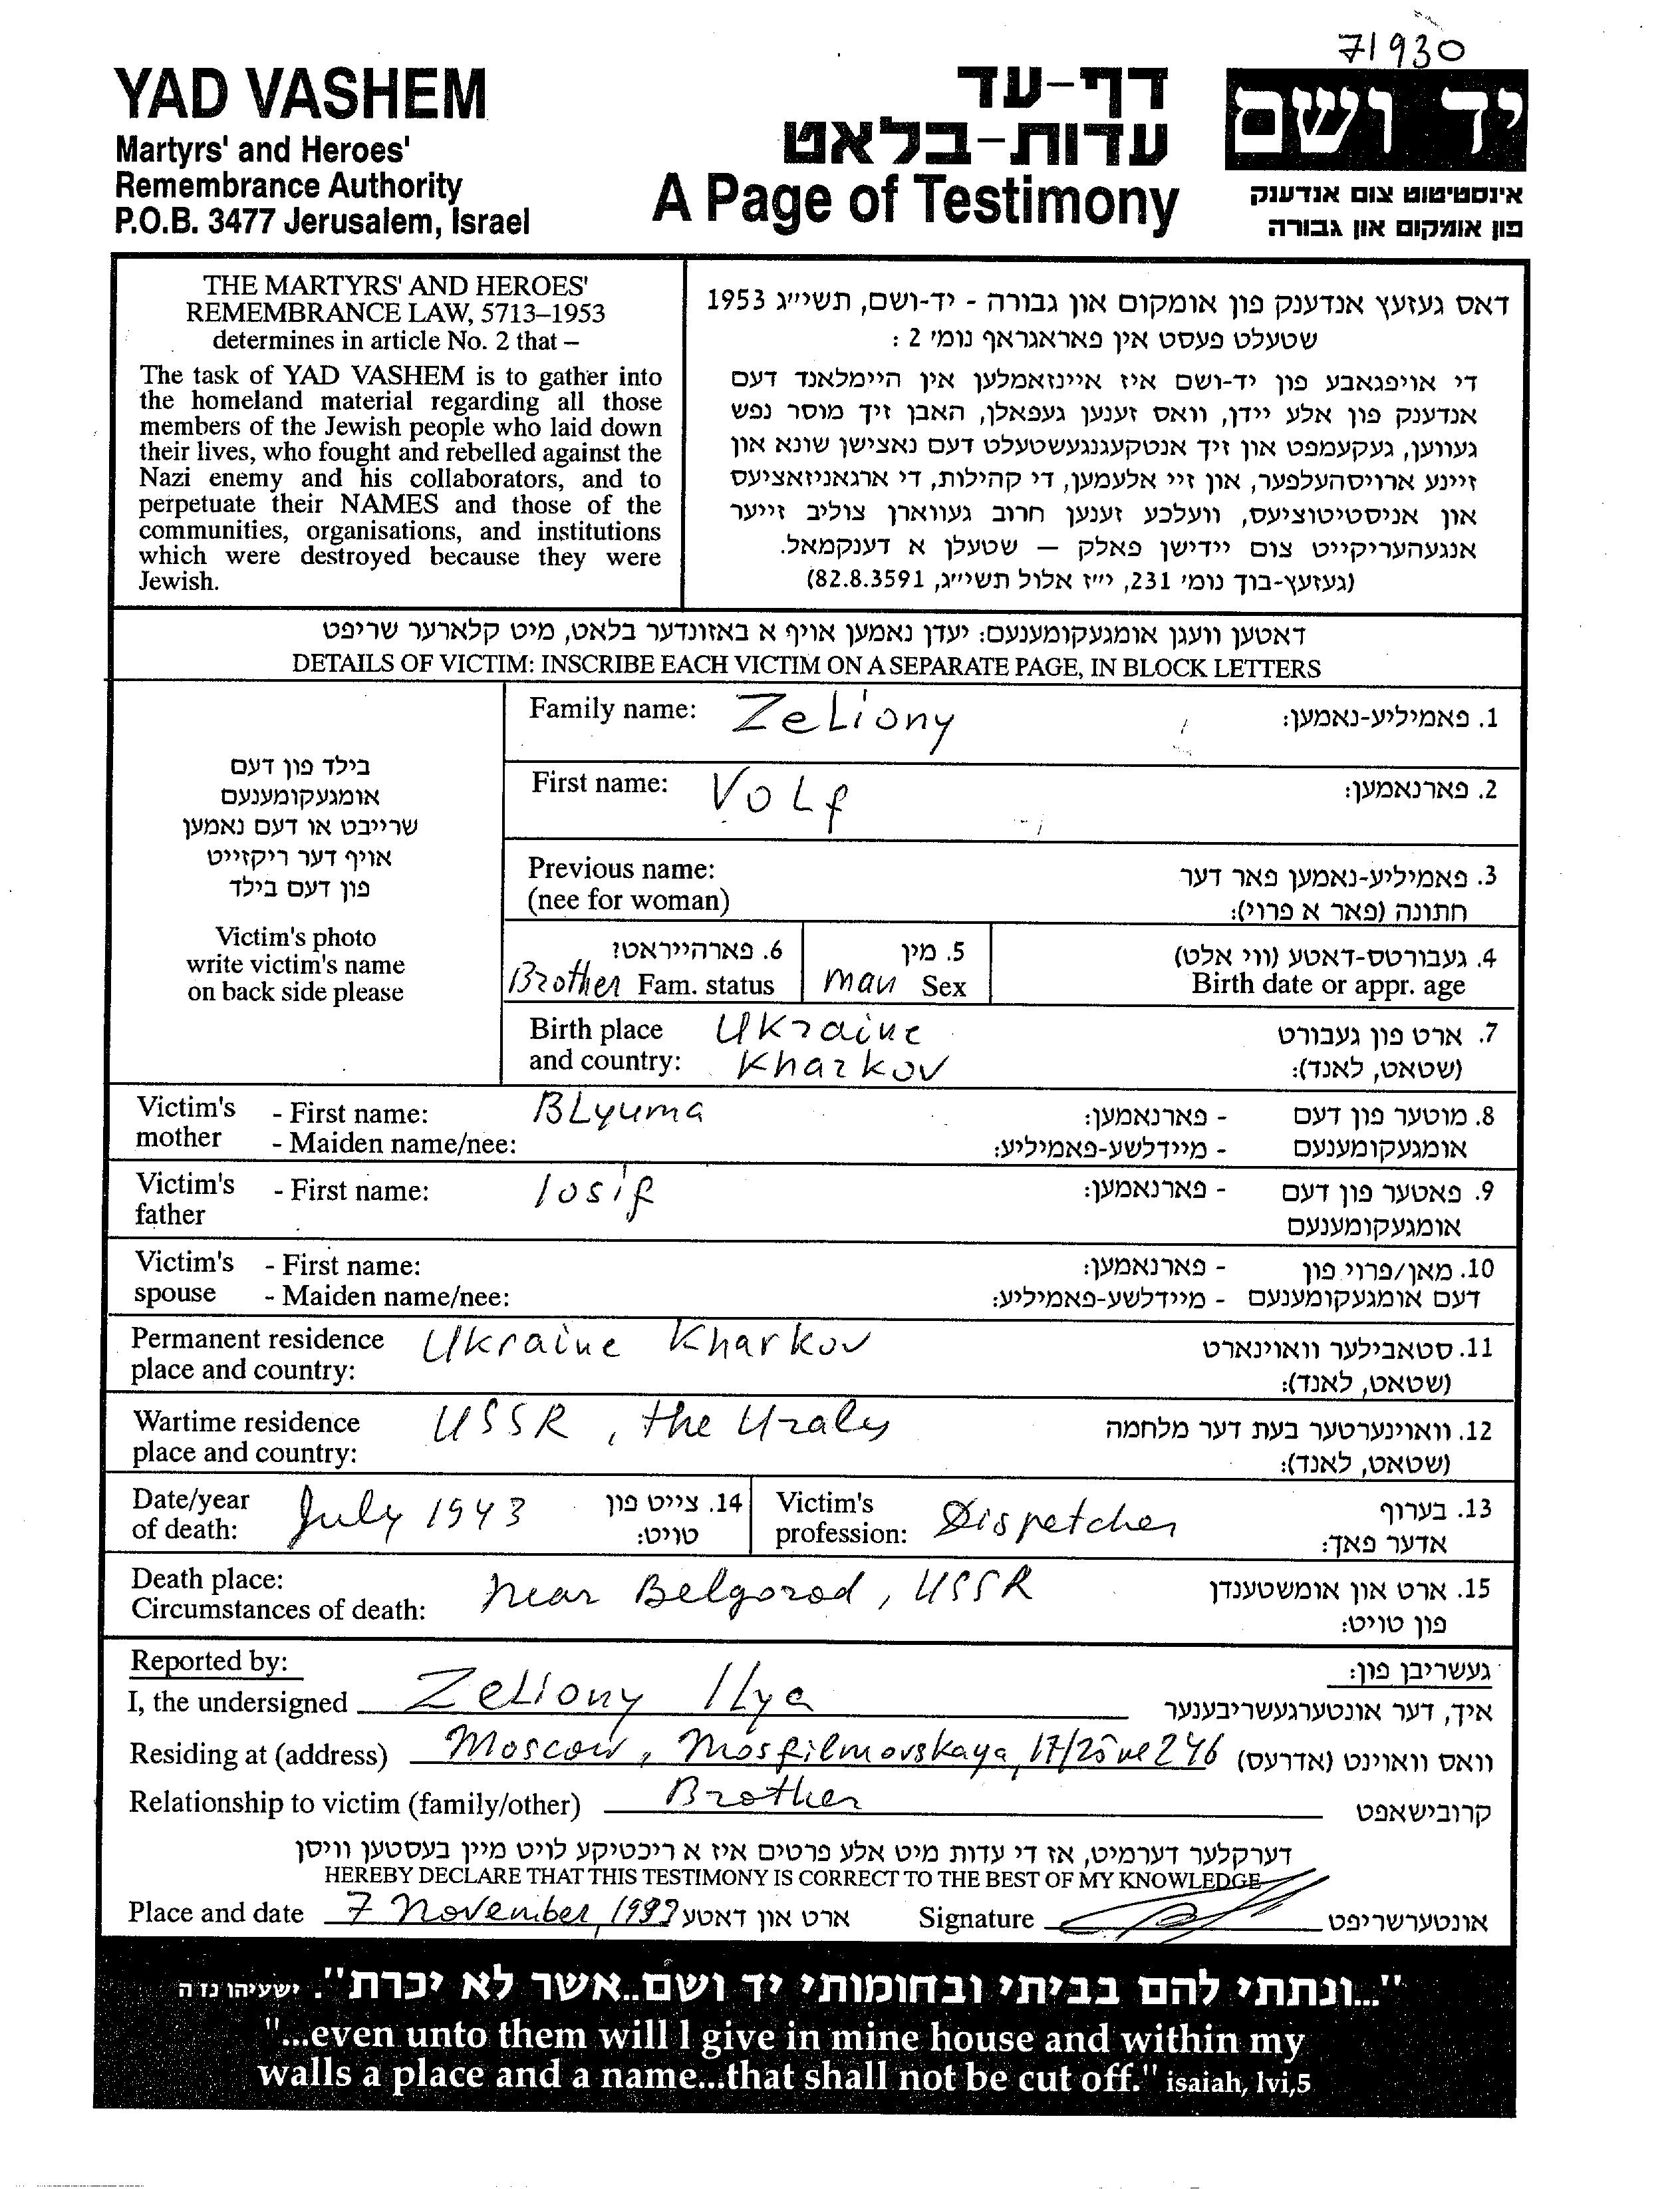 71930
YAD VASHEM
Martyrs' and Heroes'
Remembrance Authority
P.O.B. 3477 Jerusalem, Israel
דף-עד
עדות-בלאט
A Page of Testimony
יד ושם
אינסטיטוט צום אנדענק
פון אומקום און גבורה
THE MARTYRS' AND HEROES'
REMEMBRANCE LAW, 5713–1953
determines in article No. 2 that –
The task of YAD VASHEM is to gather into
the homeland material regarding all those
members of the Jewish people who laid down
their lives, who fought and rebelled against the
Nazi enemy and his collaborators, and to
perpetuate their NAMES and those of the
communities, organisations, and institutions
which were destroyed because they were
Jewish.
דאס געזעץ אנדענק פון אומקום און גבורה - יד-ושם, תשי״ג 1953
שטעלט פעסט אין פאראגראף נומ׳ 2 :
די אויפגאבע פון יד-ושם איז איינזאמלען אין היימלאנד דעם
אנדענק פון אלע יידן, וואס זענען געפאלן, האבן זיך מוסר נפש
געווען, געקעמפט און זיך אנטקעגנגעשטעלט דעם נאצישן שונא און
זיינע ארויסהעלפער, און זיי אלעמען, די קהילות, די ארגאניזאציעס
און אניסטיטוציעס, וועלכע זענען חרוב געווארן צוליב זייער
אנגעהעריקייט צום יידישן פאלק — שטעלן א דענקמאל.
(געזעץ-בוך נומ׳ 231, י״ז אלול תשי״ג, 82.8.3591)
דאטען וועגן אומגעקומענעם: יעדן נאמען אויף א באזונדער בלאט, מיט קלארער שריפט
DETAILS OF VICTIM: INSCRIBE EACH VICTIM ON A SEPARATE PAGE, IN BLOCK LETTERS
בילד פון דעם
אומגעקומענעם
שרייבט או דעם נאמען
אויף דער ריקזייט
פון דעם בילד
Victim's photo
write victim's name
on back side please
Family name: ZeLiony 1. פאמיליע-נאמען:
First name: VOLf 2. פארנאמען:
Previous name: 3. פאמיליע-נאמען פאר דער
(nee for woman) חתונה (פאר א פרוי):
6. פארהייראט? 5. מין 4. געבורטס-דאטע (ווי אלט)
Brother Fam. status man Sex Birth date or appr. age
Birth place Ukraine 7. ארט פון געבורט
and country: Kharkov (שטאט, לאנד):
Victim's - First name: BLyuma - פארנאמען: 8. מוטער פון דעם
mother - Maiden name/nee: - מיידלשע-פאמיליע: אומגעקומענעם
Victim's - First name: Iosif - פארנאמען: 9. פאטער פון דעם
father אומגעקומענעם
Victim's - First name: - פארנאמען: 10. מאן/פרוי פון
spouse - Maiden name/nee: - מיידלשע-פאמיליע: דעם אומגעקומענעם
Permanent residence Ukraine Kharkov 11. סטאבילער וואוינארט
place and country: (שטאט, לאנד):
Wartime residence USSR, the Uraly 12. וואוינערטער בעת דער מלחמה
place and country: (שטאט, לאנד):
Date/year July 1943 14. צייט פון Victim's Dispetcher 13. בערוף
of death: טויט: profession: אדער פאך:
Death place: near Belgorod, USSR 15. ארט און אומשטענדן
Circumstances of death: פון טויט:
Reported by: געשריבן פון:
I, the undersigned ZeLiony Ilya איך, דער אונטערגעשריבענער
Residing at (address) Moscow, Mosfilmovskaya, 17/25 246 וואס וואוינט (אדרעס)
Relationship to victim (family/other) Brother קרובישאפט
דערקלער דערמיט, אז די עדות מיט אלע פרטים איז א ריכטיקע לויט מיין בעסטען וויסן
HEREBY DECLARE THAT THIS TESTIMONY IS CORRECT TO THE BEST OF MY KNOWLEDGE
Place and date 7 November, ארט און דאטע Signature אונטערשריפט
"...ונתתי להם בביתי ובחומותי יד ושם...אשר לא יכרת". ישעיהו נז ה
"...even unto them will I give in mine house and within my
walls a place and a name...that shall not be cut off." isaiah, lvi,5